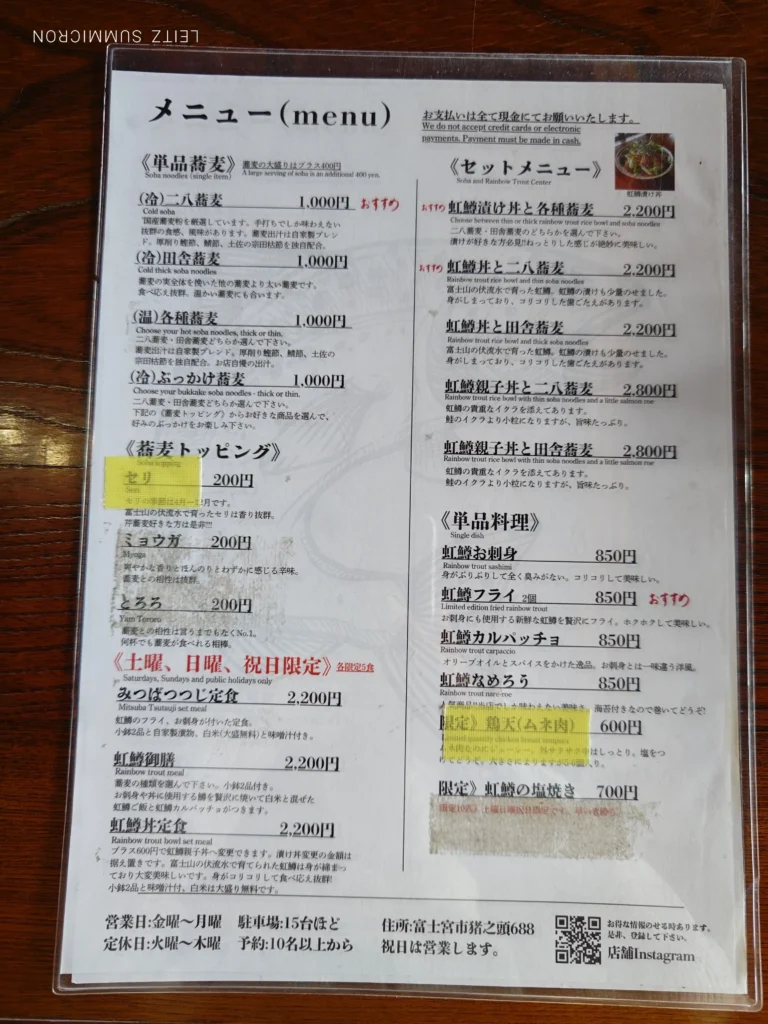 LEITZ SUMMICRON
メニュー(menu)
お支払いは全て現金にてお願いいたします。
We do not accept credit cards or electronic
payments. Payment must be made in cash.
《単品蕎麦》 蕎麦の大盛りはプラス400円
Soba noodles (single item) A large serving of soba is an additional 400 yen.
(冷)二八蕎麦 1,000円 おすすめ
Cold soba
国産蕎麦粉を厳選しています。手打ちでしか味わえない
抜群の食感、風味があります。蕎麦出汁は自家製ブレン
ド。厚削り鰹節、鯖節、土佐の宗田枯節を独自配合。
(冷)田舎蕎麦 1,000円
Cold thick soba noodles
蕎麦の実全体を挽いた他の蕎麦より太い蕎麦です。
食べ応え抜群。温かい蕎麦にも合います。
(温)各種蕎麦 1,000円
Choose your hot soba noodles, thick or thin.
二八蕎麦・田舎蕎麦どちらか選んで下さい。
蕎麦出汁は自家製ブレンド。厚削り鰹節、鯖節、土佐の
宗田枯節を独自配合。お店自慢の出汁。
(冷)ぶっかけ蕎麦 1,000円
Choose your bukkake soba noodles - thick or thin.
二八蕎麦・田舎蕎麦どちらか選んで下さい。
下記の《蕎麦トッピング》からお好きな商品を選んで、
好みのぶっかけをお楽しみ下さい。
《蕎麦トッピング》
Soba topping
セリ 200円
Seri
セリの季節は4月〜12月です。
富士山の伏流水で育ったセリは香り抜群。
芹蕎麦好きな方は是非!!!
ミョウガ 200円
Myoga
爽やかな香りとほんのりとわずかに感じる辛味。
蕎麦との相性は抜群。
とろろ 200円
Yam Tororo
蕎麦との相性は言うまでもなくNo.1。
何杯でも蕎麦が食べれる相棒。
《土曜、日曜、祝日限定》 各限定5食
Saturdays, Sundays and public holidays only
みつばつつじ定食 2,200円
Mitsuba Tsutsuji set meal
虹鱒のフライ、お刺身が付いた定食。
小鉢2品と自家製漬物、白米(大盛無料)と味噌汁付き。
虹鱒御膳 2,200円
Rainbow trout meal
蕎麦の種類を選んで下さい。小鉢2品付き。
お刺身や丼に使用する鱒を贅沢に焼いて白米と混ぜた
虹鱒ご飯と虹鱒カルパッチョがつきます。
虹鱒丼定食 2,200円
Rainbow trout bowl set meal
プラス600円で虹鱒親子丼へ変更できます。漬け丼変更の金額は
据え置きです。富士山の伏流水で育てられた虹鱒は身が締まっ
ており大変美味しいです。身がコリコリして食べ応え抜群!
小鉢2品と味噌汁付、白米は大盛り無料です。
《セットメニュー》
Soba and Rainbow Trout Center
虹鱒漬け丼
おすすめ 虹鱒漬け丼と各種蕎麦 2,200円
Choose between thin or thick rainbow trout rice bowl and soba noodles
二八蕎麦・田舎蕎麦のどちらかを選んで下さい。
漬けが好きな方必見!!ねっとりした感じが絶妙に美味しい。
おすすめ 虹鱒丼と二八蕎麦 2,200円
Rainbow trout rice bowl and thin soba noodles
富士山の伏流水で育った虹鱒。虹鱒の漬けも少量のせました。
身がしまっており、コリコリした歯ごたえがあります。
虹鱒丼と田舎蕎麦 2,200円
Rainbow trout rice bowl and thick soba noodles
富士山の伏流水で育った虹鱒。虹鱒の漬けも少量のせました。
身がしまっており、コリコリした歯ごたえがあります。
虹鱒親子丼と二八蕎麦 2,800円
Rainbow trout rice bowl with thin soba noodles and a little salmon roe
虹鱒の貴重なイクラを添えてあります。
鮭のイクラより小粒になりますが、旨味たっぷり。
虹鱒親子丼と田舎蕎麦 2,800円
Rainbow trout rice bowl with thin soba noodles and a little salmon roe
虹鱒の貴重なイクラを添えてあります。
鮭のイクラより小粒になりますが、旨味たっぷり。
《単品料理》
Single dish
虹鱒お刺身 850円
Rainbow trout sashimi
身がぷりぷりして全く臭みがない。コリコリして美味しい。
虹鱒フライ 2個 850円 おすすめ
Limited edition fried rainbow trout
お刺身にも使用する新鮮な虹鱒を贅沢にフライ。ホクホクして美味しい。
虹鱒カルパッチョ 850円
Rainbow trout carpaccio
オリーブオイルとスパイスをかけた逸品。お刺身とは一味違う洋風。
虹鱒なめろう 850円
Rainbow trout
味わえない美味さ。海苔付きなので巻いてどうぞ!
限定》鶏天(ムネ肉) 600円
Limited quantity chicken breast tempura
はしっとり。塩をつ
限定》虹鱒の塩焼き 700円
営業日:金曜〜月曜 駐車場:15台ほど 住所:富士宮市猪之頭688
定休日:火曜〜木曜 予約:10名以上から 祝日は営業します。
お得な情報のせる時あります。
是非、登録して下さい。
店舗Instagram